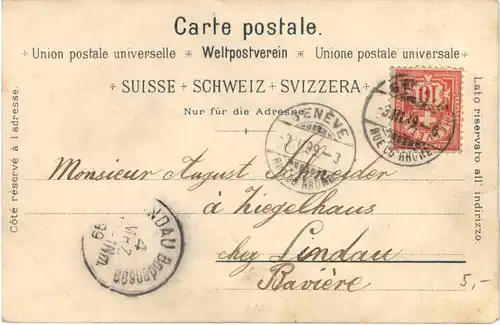 Carte postale.
Union postale universelle Weltpostverein Unione postale universale
SUISSE SCHWEIZ SVIZZERA
Nur für die Adresse.
Côté réservé à l'adresse.
Lato riservato all' indirizzo.
GENÈVE
RUE DU RHÔNE
10
RUE DU RHÔNE
Monsieur August Schneider
à Ziegelhaus
chez Lindau
Bavière
LINDAU Bodensee
4
99
5,-